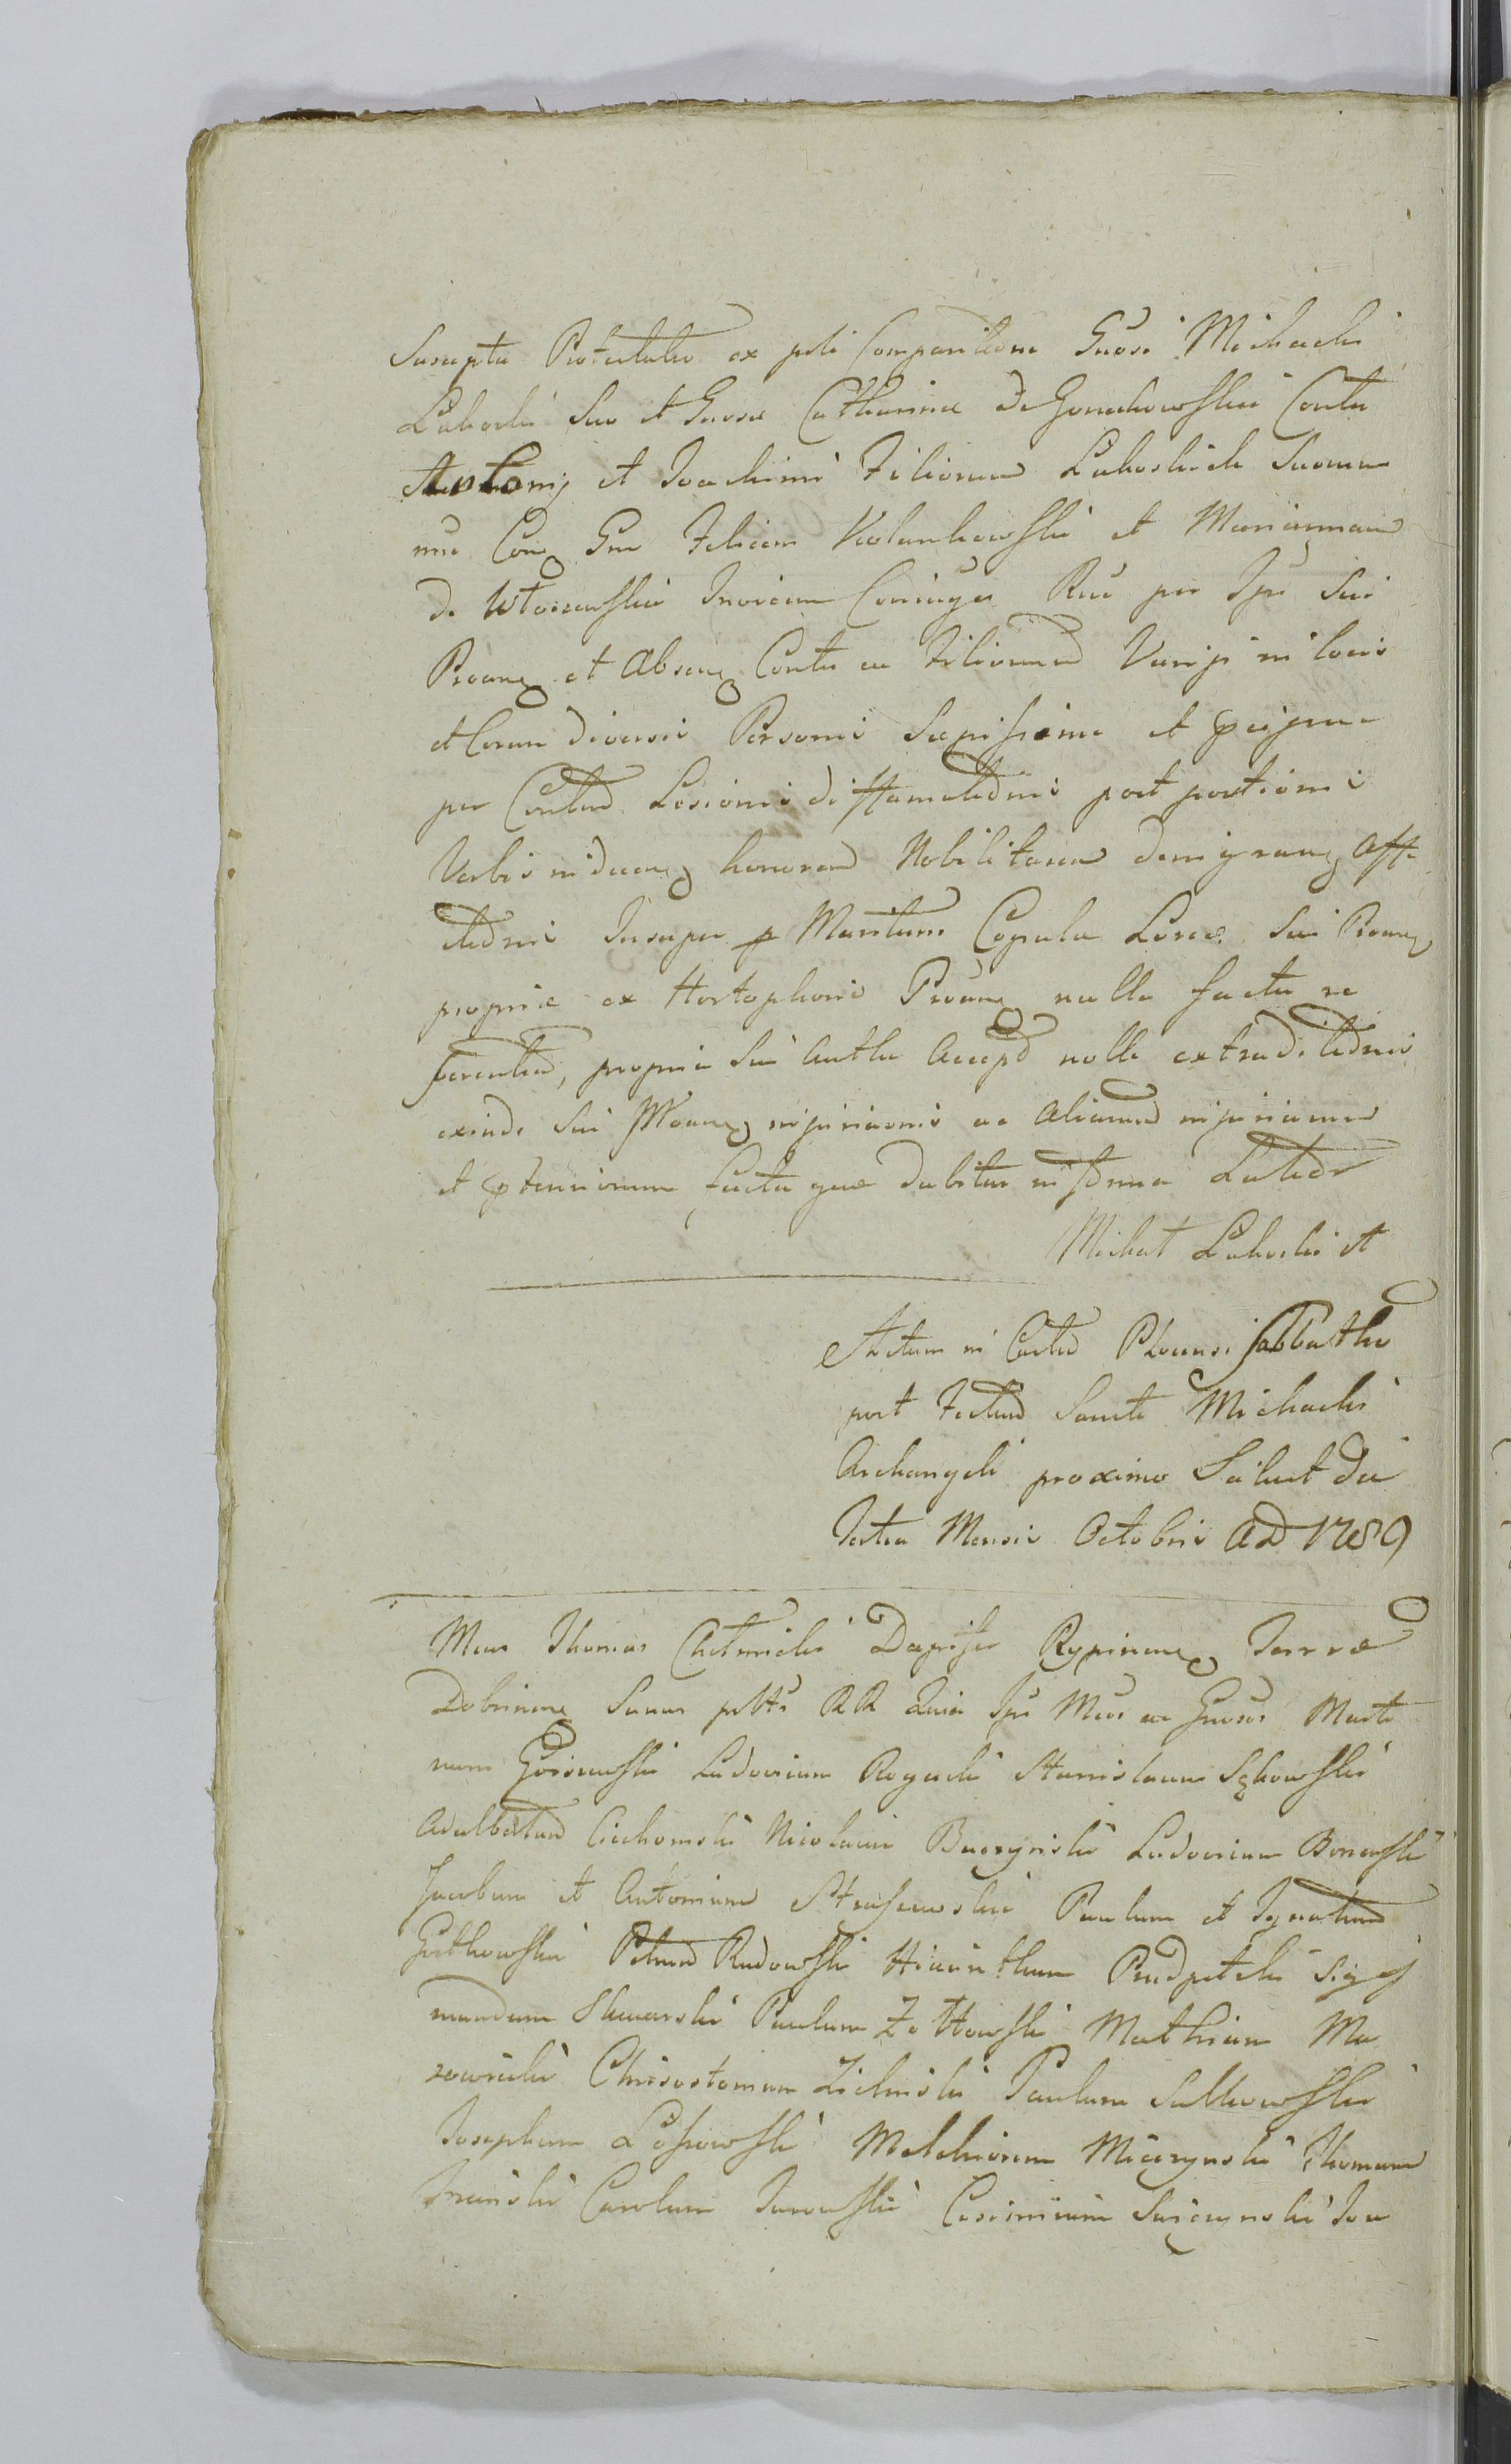 Suscepta Protestatio ex psti Comparitione Gnosi Michaelis
Lukoski suo et Gnosa Catharina de Gonschowskie Contu
Antonij et Joachimi Filiorum Lukoskich suorum
nne Conq Gm Felicem Wolankowski et Mariannam
de Wtoszewskie Invicem Coniuges Rus per Ipsi Sui
Proanq et Absenq Contu ac Filiorum Varijs in locis
et Coram diversis Personis Saepissime et
per Contud Lesionis diffamationis post portionis
Verbis niducenq honorem Nobilitarem denigranq Affe
ctidnis Insuper p Maritum Copula Lorea Sui Proanq
propria ex Hortophoris Proanq nulla facta re
ferentia, propria Sui Autha Accepd nolle extraditidnis
exinde Sui Proanq injuriaonis ac Aliarum injuriarum
et ptensionum facta quae dabitur in forma Latiori
Michał Lukoski et
Actum in Castro Plocensi Sabbatho
post Festum Sancti Michaelis
Archangeli proximo Scilicet die
Tertia Mensis Octobris AD 1789
Mcus Thomas Chełmicki Dapifer Rypinenq Terrae
Dobrinenq Sanus pstti RR Quia Ipse Mcos ac Gnosos Marti
num Gorzewski Ludovicum Rogucki Stanislaum Sękowski
Adalbertum Cichomski Nicolaum Buczynski Ludovicum Bonewski
Jacobum et Antonium Straszewskie Paulum et Ignatium
Gutkowskie Petrum Rudowski Hiacinthum Prudpetski Sigis
mundum Skwarski Paulum Zottowski Mathiam Ma
zowiecki Chrisostomum Zielinski Paulum Sulkowski
Josephum Lossowski Melchiorem Mieczynski Thomam
Trzcinski Carolum Jurowski Casimirum Swięcynski Joa